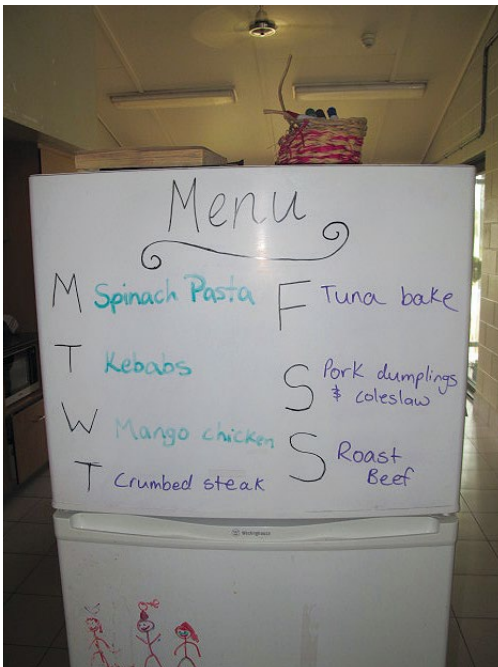 Menu
M Spinach Pasta
T Kebabs
W Mango chicken
T Crumbed steak
F Tuna bake
S Pork dumplings
& coleslaw
S Roast
Beef
Westinghouse